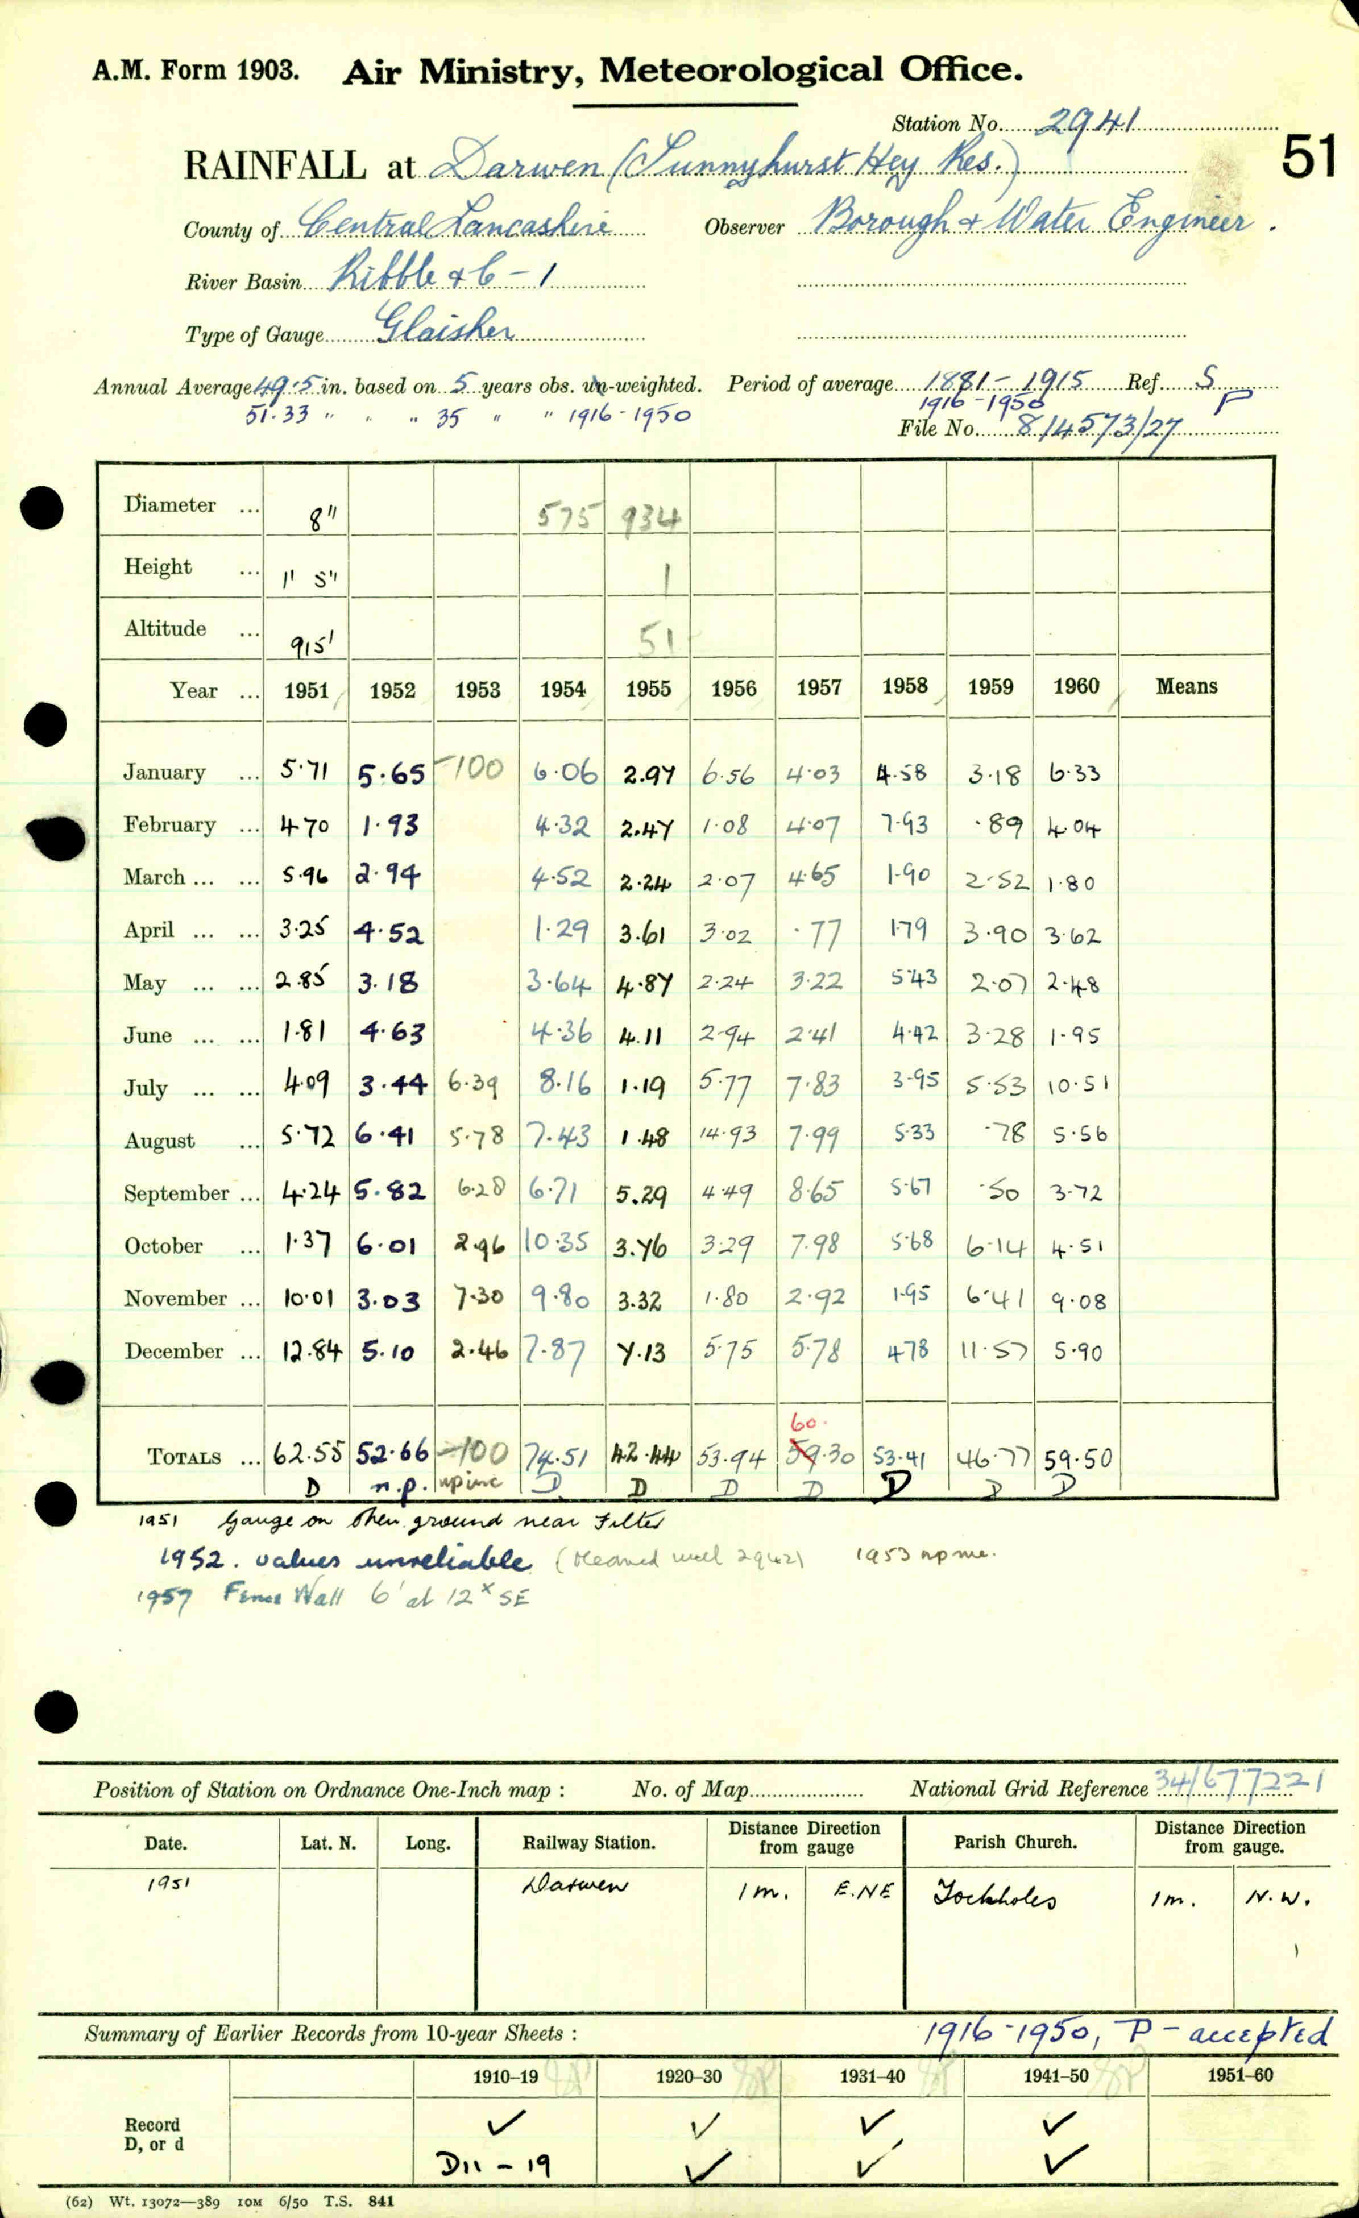 A.M. Form 1903. Air Ministry, Meteorological Office.
Station No. 2941
51
RAINFALL at Darwen (Sunnyhurst Hey Res.)
County of Central Lancashire Observer Borough & Water Engineer.
River Basin Ribble &C - 1
Type of Gauge Glaisher
Annual Average 49.5 in. based on 5 years obs. un-weighted. Period of average 1881 - 1915 Ref. S
51.33 " " " 35 " " 1916 - 1950 1916 - 1950 P
File No. 8/4573/27
Diameter ... 8" 575 934
Height ... 1' 5" 1
Altitude ... 915' 51
Year ... 1951 1952 1953 1954 1955 1956 1957 1958 1959 1960 Means
January ... 5.71 5.65 -100 6.06 2.97 6.56 4.03 4.58 3.18 6.33
February ... 4.70 1.93 4.32 2.47 1.08 4.07 7.93 .89 4.04
March ... ... 5.96 2.94 4.52 2.24 2.07 4.65 1.90 2.52 1.80
April ... ... 3.25 4.52 1.29 3.61 3.02 .77 1.79 3.90 3.62
May ... ... 2.85 3.18 3.64 4.87 2.24 3.22 5.43 2.07 2.48
June ... ... 1.81 4.63 4.36 4.11 2.94 2.41 4.42 3.28 1.95
July ... ... 4.09 3.44 6.39 8.16 1.19 5.77 7.83 3.95 5.53 10.51
August ... 5.72 6.41 5.78 7.43 1.48 14.93 7.99 5.33 .78 5.56
September ... 4.24 5.82 6.28 6.71 5.29 4.49 8.65 5.67 .50 3.72
October ... 1.37 6.01 2.96 10.35 3.76 3.29 7.98 5.68 6.14 4.51
November ... 10.01 3.03 7.30 9.80 3.32 1.80 2.92 1.95 6.41 9.08
December ... 12.84 5.10 2.46 7.87 7.13 5.75 5.78 4.78 11.57 5.90
60.
TOTALS ... 62.55 52.66 -100 74.51 42.44 53.94 59.30 53.41 46.77 59.50
D n.p. np inc D D D D D D D
1951 Gauge on open ground near Filter
1952. values unreliable (Meaned well 2942) 1953 np inc.
1957 Fence Wall 6' at 12x SE
Position of Station on Ordnance One-Inch map : No. of Map National Grid Reference 34/677221
Date. Lat. N. Long. Railway Station. Distance Direction from gauge Parish Church. Distance Direction from gauge.
1951 Darwen 1 m. E.NE Tockholes 1 m. N.W.
Summary of Earlier Records from 10-year Sheets : 1916-1950, P - accepted
1910–19 1920–30 1931–40 1941–50 1951–60
Record ✓ ✓ ✓ ✓
D, or d D11 - 19 ✓ ✓ ✓
(62) Wt. 13072—389 10M 6/50 T.S. 841